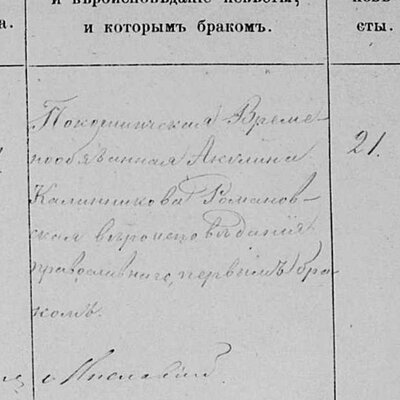 и вѣроисповѣданіе невѣсты,
и которымъ бракомъ.
сты.
Временно
обязанная Акулина
Калинникова Романов-
ская вѣроисповѣданія
православнаго, первымъ бра-
комъ.
21.